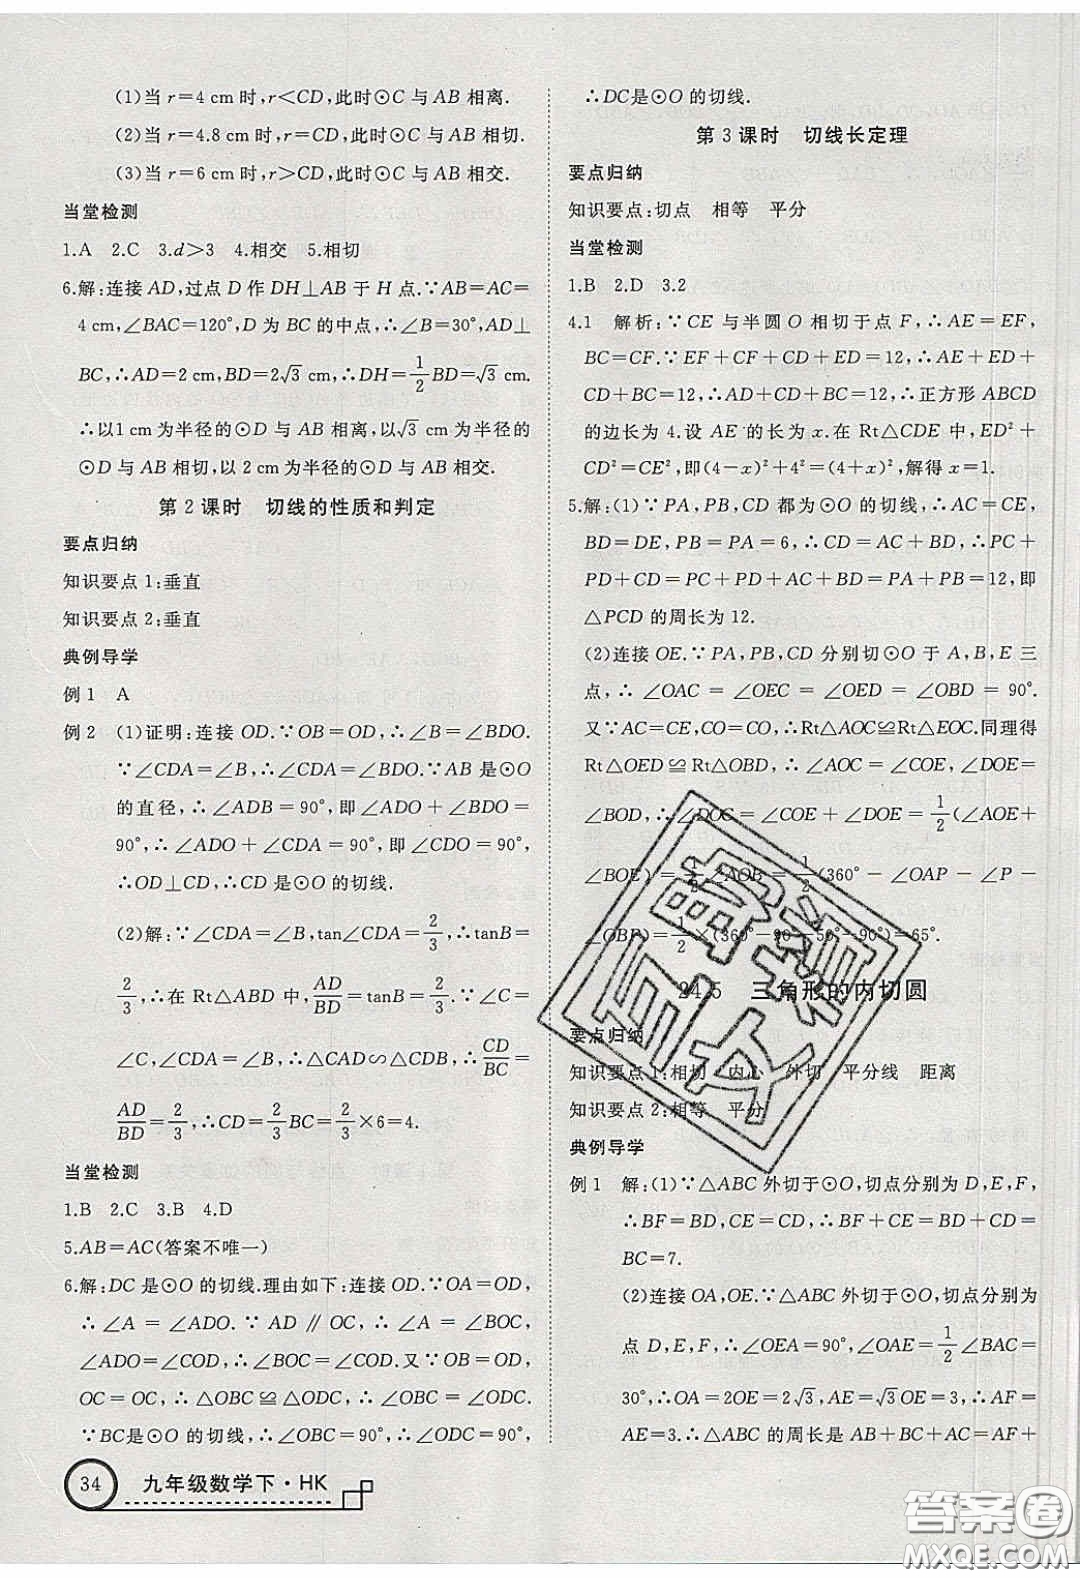 (1)当 r=4 cm时,r<CD,此时⊙C 与 AB 相离.
(2)当 r=4.8 cm时,r=CD,此时⊙C 与 AB 相切.
(3)当 r=6 cm时,r>CD,此时⊙C 与 AB 相交.
当堂检测
1.A 2.C 3.d>3 4.相交 5.相切
6.解:连接 AD,过点 D 作 DH⊥AB 于 H 点.∵AB=AC=
4 cm,∠BAC=120°,D 为 BC 的中点,∴∠B=30°,AD⊥
BC,∴AD=2 cm,BD=2√3 cm,∴DH=1/2BD=√3 cm.
∴以1 cm为半径的⊙D 与 AB 相离,以√3 cm为半径的
⊙D 与 AB 相切,以 2 cm为半径的⊙D 与 AB 相交.
第 2 课时 切线的性质和判定
要点归纳
知识要点 1:垂直
知识要点 2:垂直
典例导学
例 1 A
例 2 (1)证明:连接 OD.∵OB=OD,∴∠B=∠BDO.
∵∠CDA=∠B,∴∠CDA=∠BDO.∵AB 是⊙O
的直径,∴∠ADB=90°,即∠ADO+∠BDO=
90°,∴∠ADO+∠CDA=90°,即∠CDO=90°,
∴OD⊥CD,∴CD是⊙O的切线.
(2)解:∵∠CDA=∠B,tan∠CDA=2/3,∴tanB=
2/3,∴在 Rt△ABD 中,AD/BD=tanB=2/3.∵∠C=
∠C,∠CDA=∠B,∴△CAD∽△CDB,∴CD/BC=
AD/BD=2/3,∴CD=2/3BC=2/3×6=4.
当堂检测
1.B 2.C 3.B 4.D
5.AB=AC(答案不唯一)
6.解:DC是⊙O的切线.理由如下:连接 OD.∵OA=OD,
∴∠A=∠ADO.∵AD∥OC,∴∠A=∠BOC,
∠ADO=∠COD,∴∠BOC=∠COD.又∵OB=OD,
OC=OC,∴△OBC≌△ODC,∴∠OBC=∠ODC.
∵BC是⊙O 的切线,∴∠OBC=90°,∴∠ODC=90°,
34 九年级数学下·HK
∴DC是⊙O的切线.
第 3 课时 切线长定理
要点归纳
知识要点:切点 相等 平分
当堂检测
1.B 2.D 3.2
4.1 解析:∵CE 与半圆 O 相切于点 F,∴AE=EF,
BC=CF.∵EF+CF+CD+ED=12,∴AE+ED+
CD+BC=12,∴AD+CD+BC=12,∴正方形 ABCD
的边长为 4.设 AE 的长为 x.在 Rt△CDE 中,ED²+
CD²=CE²,即(4−x)²+4²=(4+x)²,解得 x=1.
5.解:(1)∵PA,PB,CD 都为⊙O的切线,∴AC=CE,
BD=DE,PA=PB=6,∴CD=AC+BD,∴PC+
PD+CD=PC+PD+AC+BD=PA+PB=12,即
△PCD 的周长为 12.
(2)连接 OE.∵PA,PB,CD 分别切⊙O 于 A,B,E 三
点,∴∠OAC=∠OEC=∠OED=∠OBD=90°.
又∵AC=CE,CO=CO,∴Rt△AOC≌Rt△EOC.同理得
Rt△OED≌Rt△OBD,∴∠AOC=∠COE,∠DOE=
∠BOD,∴∠DOC=∠COE+∠DOE=1/2(∠AOE+
∠BOE)=1/2∠AOB=1/2(360°−∠OAP−∠P−
∠OBP)=1/2×(360°−90°−50°−90°)=65°.
24.5 三角形的内切圆
要点归纳
知识要点 1:相切 内心 外切 平分线 距离
知识要点 2:相等 平分
典例导学
例 1 解:(1)∵△ABC外切于⊙O,切点分别为 D,E,F,
∴BF=BD,CE=CD,∴BF+CE=BD+CD=
BC=7.
(2)连接OA,OE.∵△ABC外切于⊙O,切点分别为
点 D,E,F,∴∠OEA=90°,∠OAE=1/2∠BAC=
30°,∴OA=2OE=2√3,AE=√3OE=3,∴AF=
AE=3.∴△ABC的周长是 AB+BC+AC=AF+
答案圈
MXQE.COM